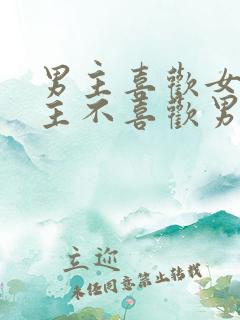 男主喜歡女
主不喜歡男
立迩
未经同意禁止转载